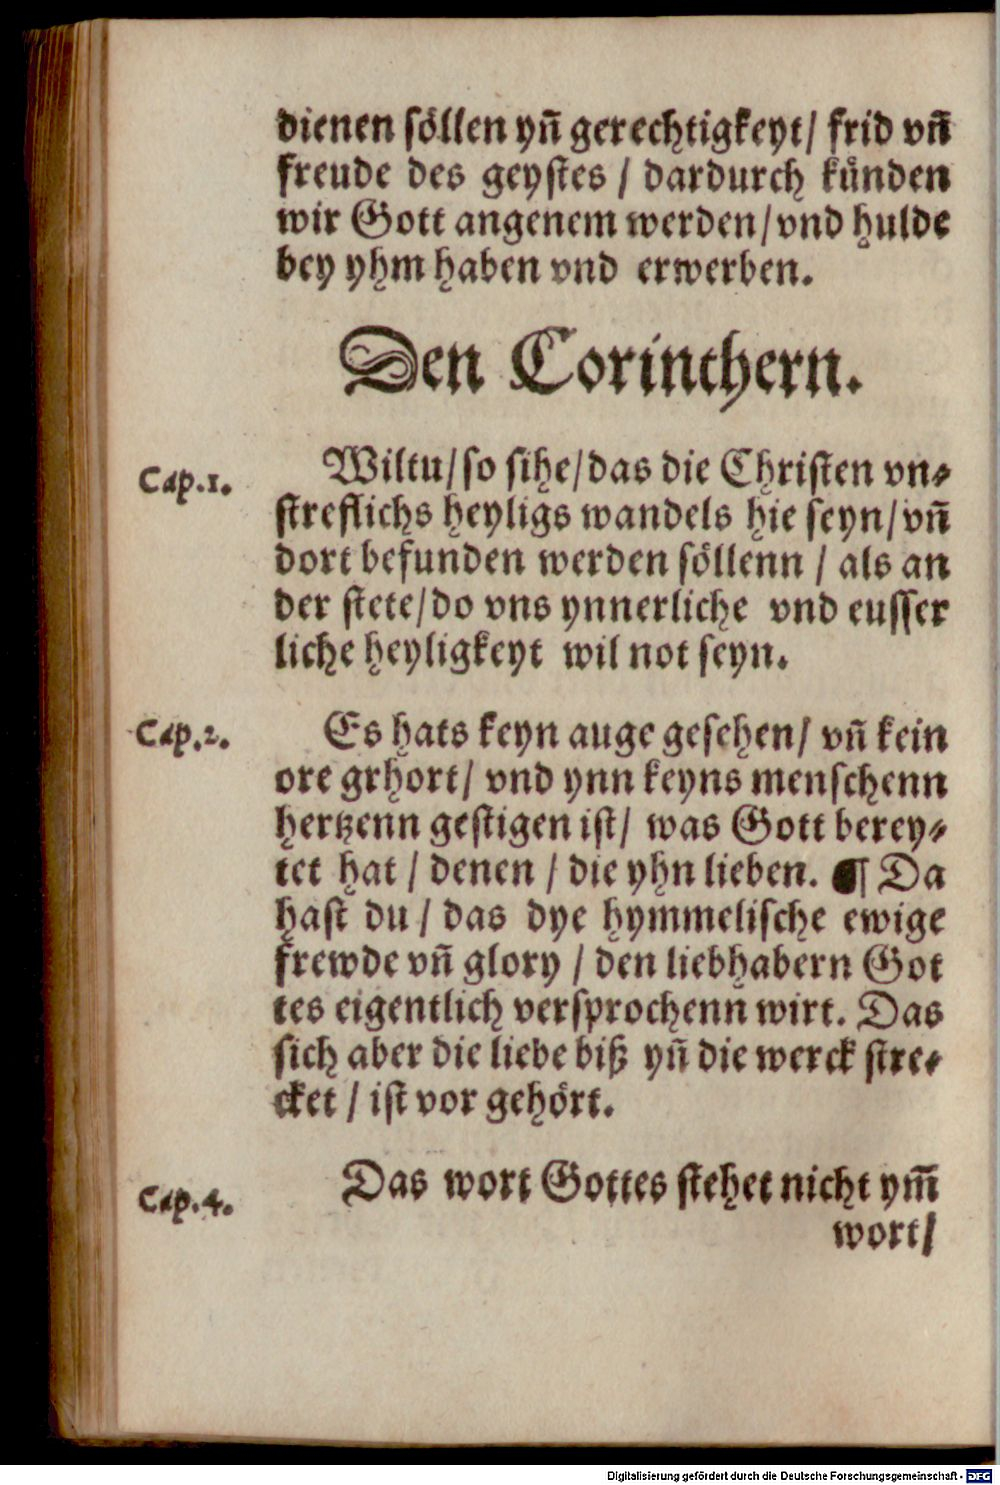 dienen söllen yñ gerechtigkeyt/ frid vñ
freude des geystes / dardurch künden
wir Gott angenem werden/vnd hulde
bey yhm haben vnd erwerben.
Den Corinthern.
Cap.1.
Wiltu/so sihe/das die Christen vn⸗
streflichs heyligs wandels hie seyn/vñ
dort befunden werden söllenn / als an
der stete/do vns ynnerliche vnd eusser
liche heyligkeyt wil not seyn.
Cap.2.
Es hats keyn auge gesehen/ vñ kein
ore grhort/ vnd ynn keyns menschenn
hertzenn gestigen ist/ was Gott berey⸗
tet hat / denen / die yhn lieben. ¶ Da
hast du / das dye hymmelische ewige
frewde vñ glory / den liebhabern Got
tes eigentlich versprochenn wirt. Das
sich aber die liebe biß yñ die werck stre⸗
cket / ist vor gehört.
Cap.4.
Das wort Gottes stehet nicht ym̃
wort/
Digitalisierung gefördert durch die Deutsche Forschungsgemeinschaft - DFG